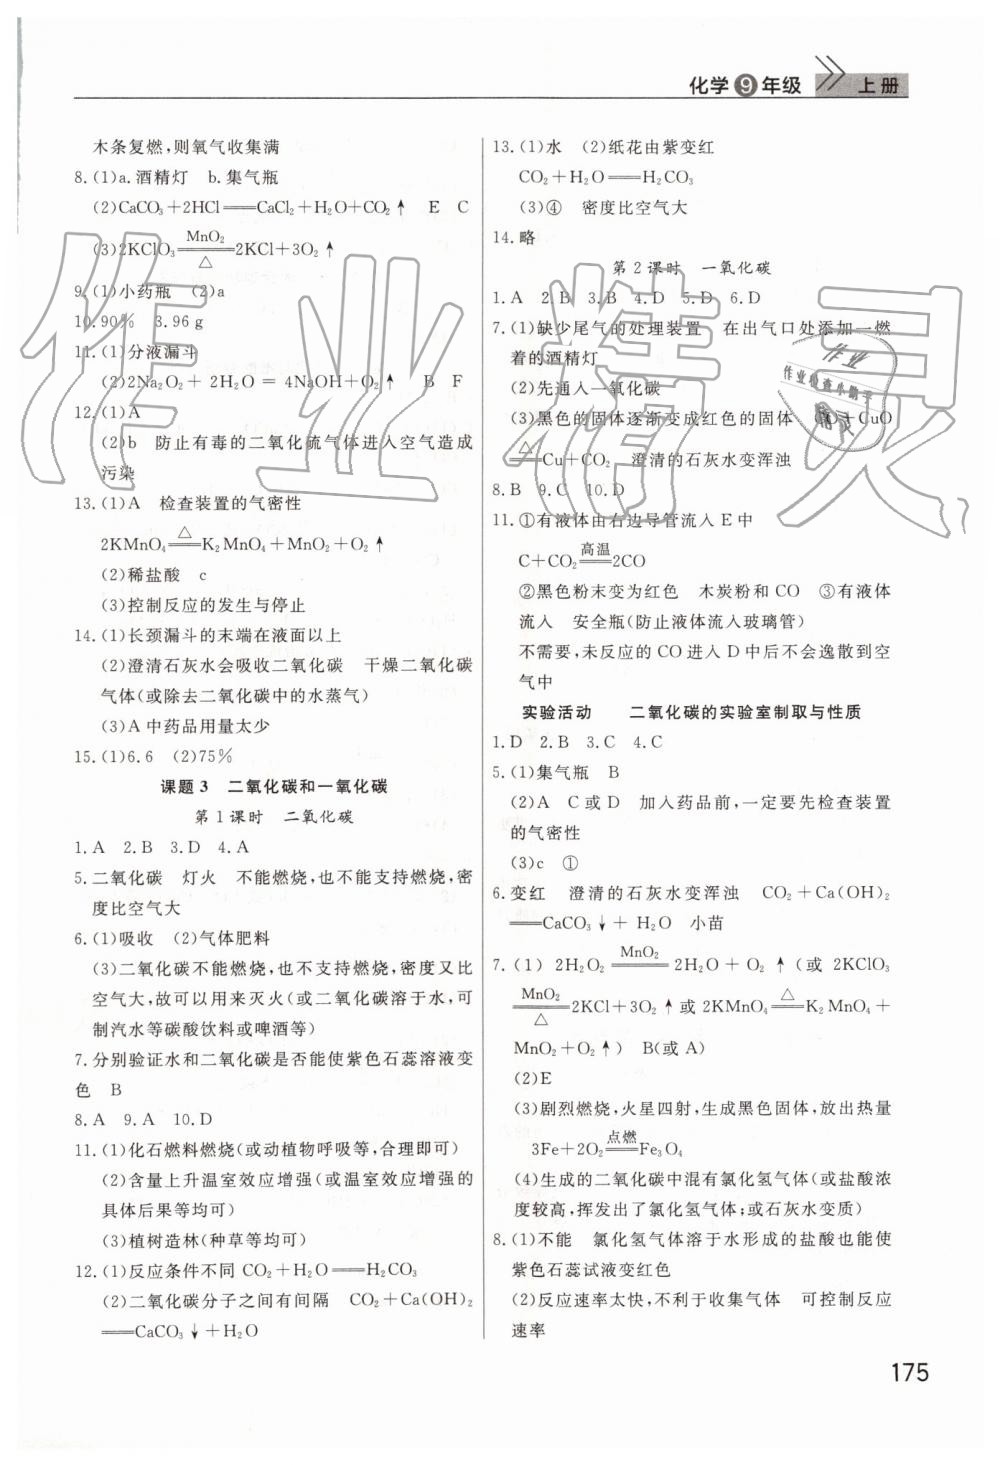 化学9年级 上册
木条复燃,则氧气收集满
8.(1)a.酒精灯 b.集气瓶
(2)CaCO₃+2HCl══CaCl₂+H₂O+CO₂↑ E C
(3)2KClO₃ MnO₂══△ 2KCl+3O₂↑
9.(1)小药瓶 (2)a
10.90% 3.96 g
11.(1)分液漏斗
(2)2Na₂O₂+2H₂O=4NaOH+O₂↑ B F
12.(1)A
(2)b 防止有毒的二氧化硫气体进入空气造成
污染
13.(1)A 检查装置的气密性
2KMnO₄ △══ K₂MnO₄+MnO₂+O₂↑
(2)稀盐酸 c
(3)控制反应的发生与停止
14.(1)长颈漏斗的末端在液面以上
(2)澄清石灰水会吸收二氧化碳 干燥二氧化碳
气体(或除去二氧化碳中的水蒸气)
(3)A中药品用量太少
15.(1)6.6 (2)75%
课题3 二氧化碳和一氧化碳
第1课时 二氧化碳
1.A 2.B 3.D 4.A
5.二氧化碳 灯火 不能燃烧,也不能支持燃烧,密
度比空气大
6.(1)吸收 (2)气体肥料
(3)二氧化碳不能燃烧,也不支持燃烧,密度又比
空气大,故可以用来灭火(或二氧化碳溶于水,可
制汽水等碳酸饮料或啤酒等)
7.分别验证水和二氧化碳是否能使紫色石蕊溶液变
色 B
8.A 9.A 10.D
11.(1)化石燃料燃烧(或动植物呼吸等,合理即可)
(2)含量上升温室效应增强(或温室效应增强的
具体后果等均可)
(3)植树造林(种草等均可)
12.(1)反应条件不同 CO₂+H₂O══H₂CO₃
(2)二氧化碳分子之间有间隔 CO₂+Ca(OH)₂
══CaCO₃↓+H₂O
13.(1)水 (2)纸花由紫变红
CO₂+H₂O══H₂CO₃
(3)④ 密度比空气大
14.略
第2课时 一氧化碳
1.A 2.B 3.B 4.D 5.D 6.D
7.(1)缺少尾气的处理装置 在出气口处添加一燃
着的酒精灯
(2)先通入一氧化碳
(3)黑色的固体逐渐变成红色的固体 CO+CuO
△══Cu+CO₂ 澄清的石灰水变浑浊
8.B 9.C 10.D
11.①有液体由右边导管流入E中
C+CO₂ 高温══ 2CO
②黑色粉末变为红色 木炭粉和CO ③有液体
流入 安全瓶(防止液体流入玻璃管)
不需要,未反应的CO进入D中后不会逸散到空
气中
实验活动 二氧化碳的实验室制取与性质
1.D 2.B 3.C 4.C
5.(1)集气瓶 B
(2)A C或D 加入药品前,一定要先检查装置
的气密性
(3)c ①
6.变红 澄清的石灰水变浑浊 CO₂+Ca(OH)₂
══CaCO₃↓+H₂O 小苗
7.(1)2H₂O₂ MnO₂══ 2H₂O+O₂↑(或2KClO₃
MnO₂══△ 2KCl+3O₂↑或2KMnO₄ △══ K₂MnO₄+
MnO₂+O₂↑) B(或A)
(2)E
(3)剧烈燃烧,火星四射,生成黑色固体,放出热量
3Fe+2O₂ 点燃══ Fe₃O₄
(4)生成的二氧化碳中混有氯化氢气体(或盐酸浓
度较高,挥发出了氯化氢气体;或石灰水变质)
8.(1)不能 氯化氢气体溶于水形成的盐酸也能使
紫色石蕊试液变红色
(2)反应速率太快,不利于收集气体 可控制反应
速率
175
作业精灵
作业
作业检查小助手
精灵